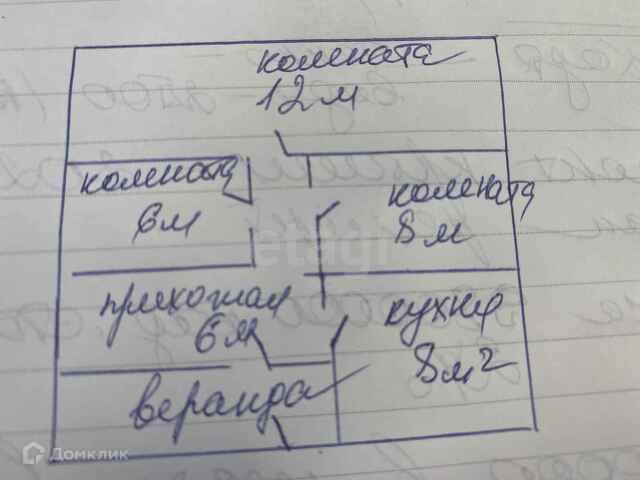 комната
12м
комната
6м
комната
8м
прихожая
6м
кухня
8м²
веранда
etagi
Домклик
2500